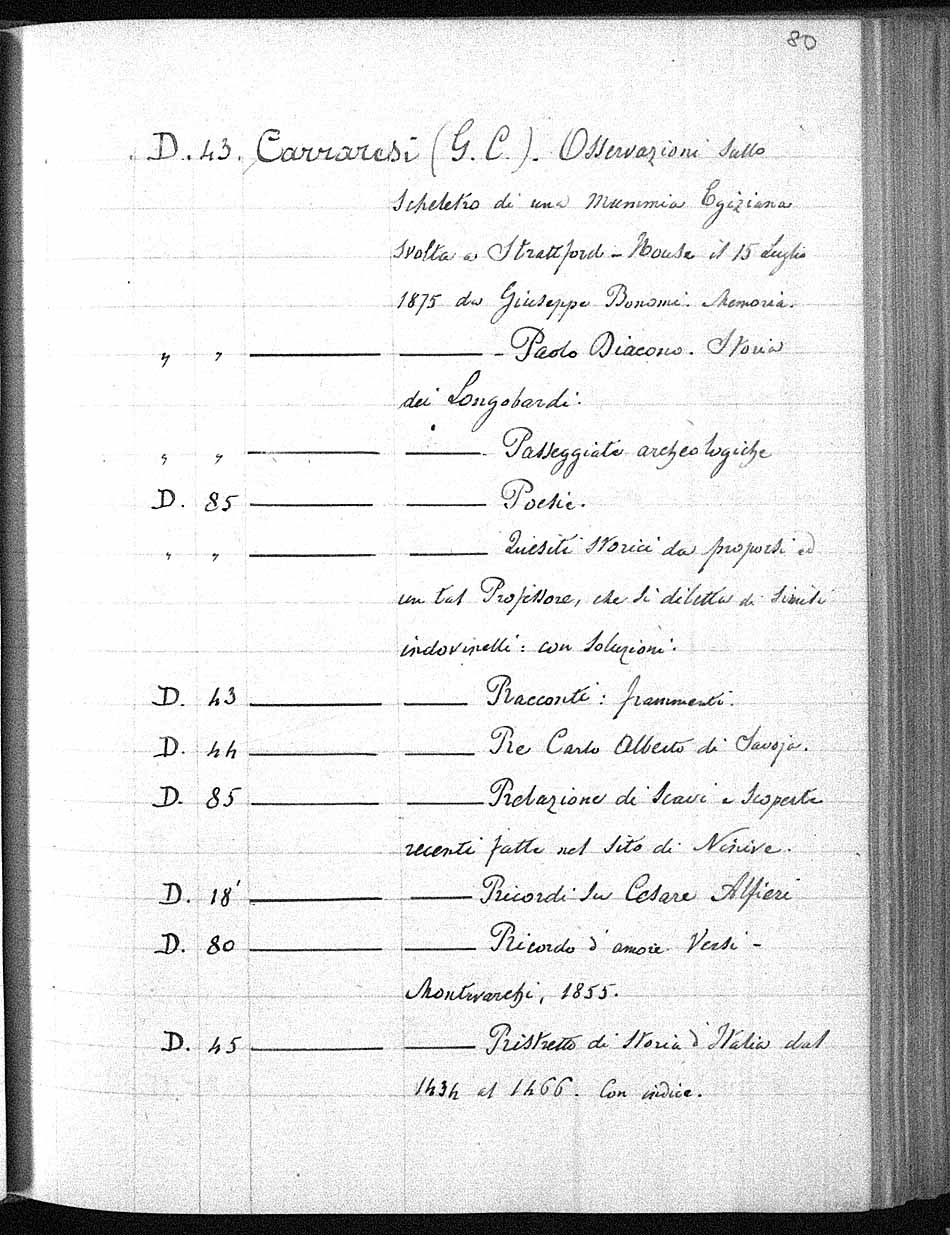 80
D. 43. Carraresi (G. C.). Osservazioni sullo
scheletro di una mummia Egiziana
svolta a Strattford-House il 15 Luglio
1875 da Giuseppe Bonomi. Memoria.
" " ——— ——— - Paolo Diacono. Storia
dei Longobardi.
" " ——— ——— Passeggiate archeologiche
D. 85 ——— ——— Poesie.
" " ——— ——— Quesiti storici da proporsi ad
un tal Professore, che si diletta di simili
indovinelli: con soluzioni.
D. 43 ——— ——— Racconti: frammenti.
D. 44 ——— ——— Re Carlo Alberto di Savoja.
D. 85 ——— ——— Relazione di scavi e scoperte
recenti fatte nel sito di Ninive.
D. 18' ——— ——— Ricordi su Cesare Alfieri
D. 80 ——— ——— Ricordo d'amore. Versi -
Montevarchi, 1855.
D. 45 ——— ——— Ristretto di storia d'Italia dal
1434 al 1466. Con indice.